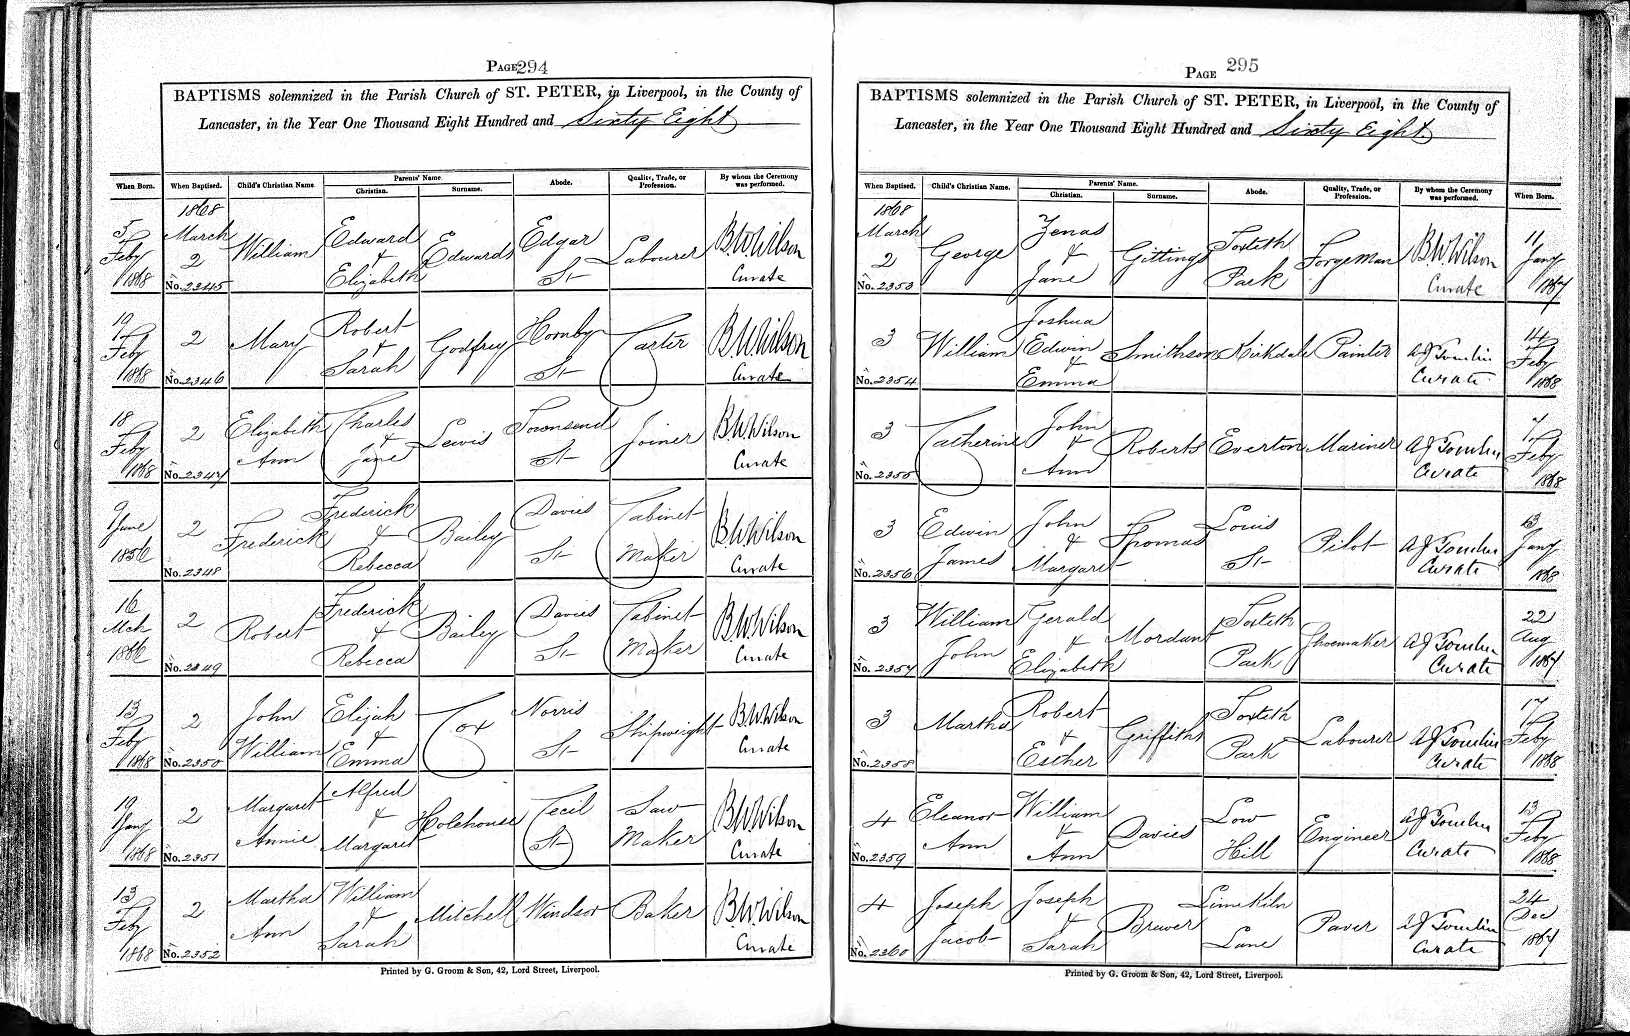 PAGE 294
BAPTISMS solemnized in the Parish Church of ST. PETER, in Liverpool, in the County of
Lancaster, in the Year One Thousand Eight Hundred and Sixty Eight
When Born. When Baptised. Child's Christian Name Parents' Name. Christian. Surname. Abode. Quality, Trade, or Profession. By whom the Ceremony was performed.
5 Feby 1868 1868 March 2 No. 2345 William Edward & Elizabeth Edwards Edgar St Labourer B.W. Wilson Curate
19 Feby 1868 2 No. 2346 Mary Robert & Sarah Godfrey Hornby St Carter B.W. Wilson Curate
18 Feby 1868 2 No. 2347 Elizabeth Ann Charles & Jane Lewis Townsend St Joiner B.W. Wilson Curate
9 June 1856 2 No. 2348 Frederick Frederick & Rebecca Bailey Davies St Cabinet Maker B.W. Wilson Curate
16 Mch 1866 2 No. 2349 Robert Frederick & Rebecca Bailey Davies St Cabinet Maker B.W. Wilson Curate
13 Feby 1868 2 No. 2350 John William Elijah & Emma Cox Norris St Shipwright B.W. Wilson Curate
19 Jany 1868 2 No. 2351 Margaret Annie Alfred & Margaret Holehouse Cecil St Saw Maker B.W. Wilson Curate
13 Feby 1868 2 No. 2352 Martha Ann William & Sarah Mitchell Windsor Baker B.W. Wilson Curate
Printed by G. Groom & Son, 42, Lord Street, Liverpool.
PAGE 295
BAPTISMS solemnized in the Parish Church of ST. PETER, in Liverpool, in the County of
Lancaster, in the Year One Thousand Eight Hundred and Sixty Eight
When Baptised. Child's Christian Name. Parents' Name. Christian. Surname. Abode. Quality, Trade, or Profession. By whom the Ceremony was performed. When Born.
1868 March 2 No. 2353 George Zenas & Jane Gittings Toxteth Park Forgeman B.W. Wilson Curate 11 Jany 1867
3 No. 2354 William Joshua Edwin & Emma Smithson Kirkdale Painter A J Tomlin Curate 14 Feby 1868
3 No. 2355 Catherine John & Ann Roberts Everton Mariner A J Tomlin Curate 7 Feby 1868
3 No. 2356 Edwin James John & Margaret Thomas Louis St Pilot A J Tomlin Curate 13 Jany 1868
3 No. 2357 William John Gerald & Elizabeth Mordant Toxteth Park Shoemaker A J Tomlin Curate 22 Aug 1867
3 No. 2358 Martha Robert & Esther Griffiths Toxteth Park Labourer A J Tomlin Curate 17 Feby 1868
4 No. 2359 Eleanor Ann William & Ann Davies Low Hill Engineer A J Tomlin Curate 13 Feby 1868
4 No. 2360 Joseph Jacob Joseph & Sarah Brewer Limekiln Lane Paver A J Tomlin Curate 24 Dec 1867
Printed by G. Groom & Son, 42, Lord Street, Liverpool.